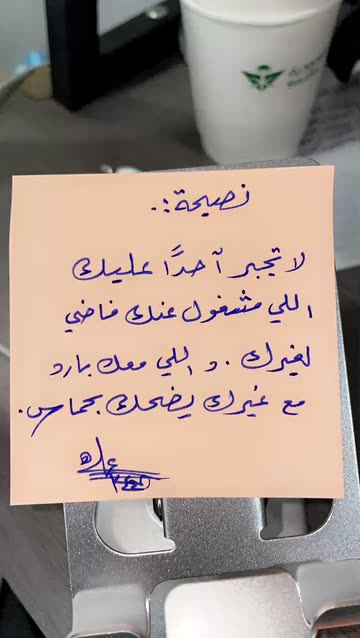 نصيحة:.
لا تجبر آحدًا عليك
اللي مشغول عنك فاضي
لغيرك . و اللي معك بارد
مع غيرك يضحك بحماس.